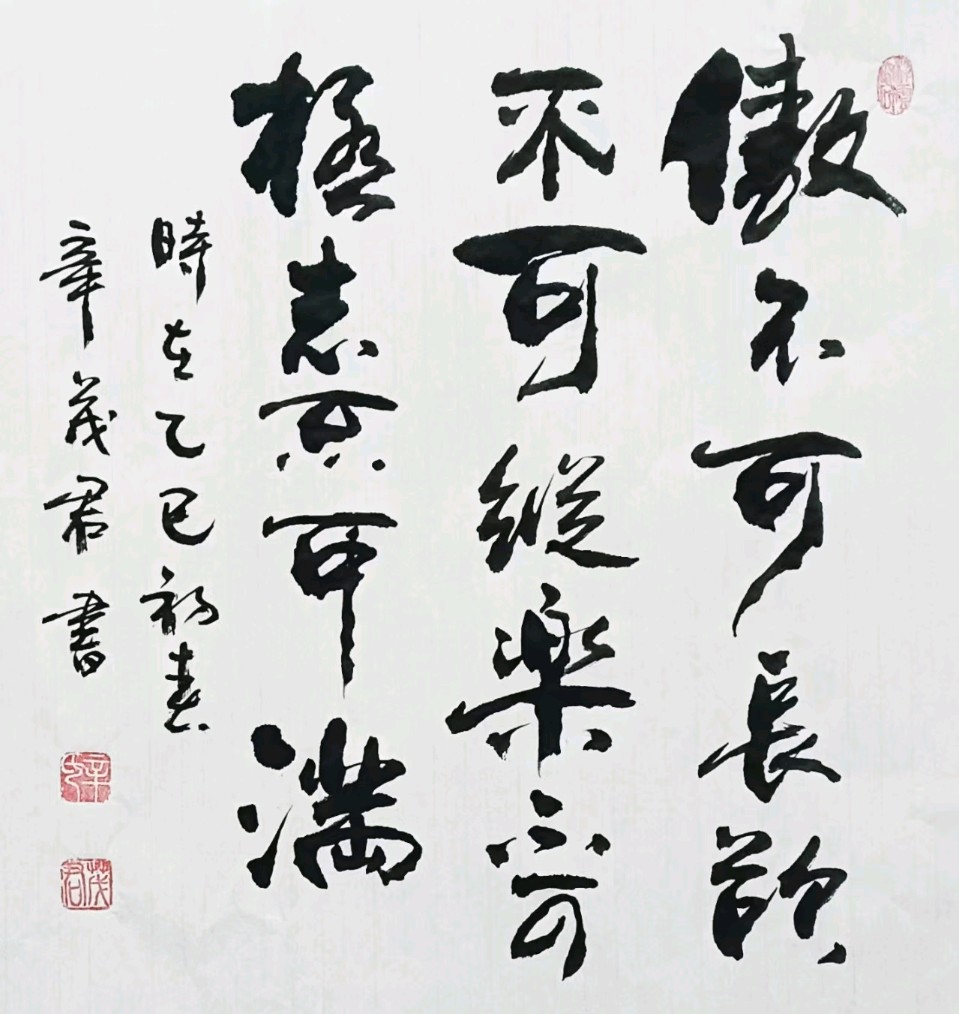 傲不可長欲
不可縱樂不可
極志不可滿
時在乙巳初春
辛茂君書